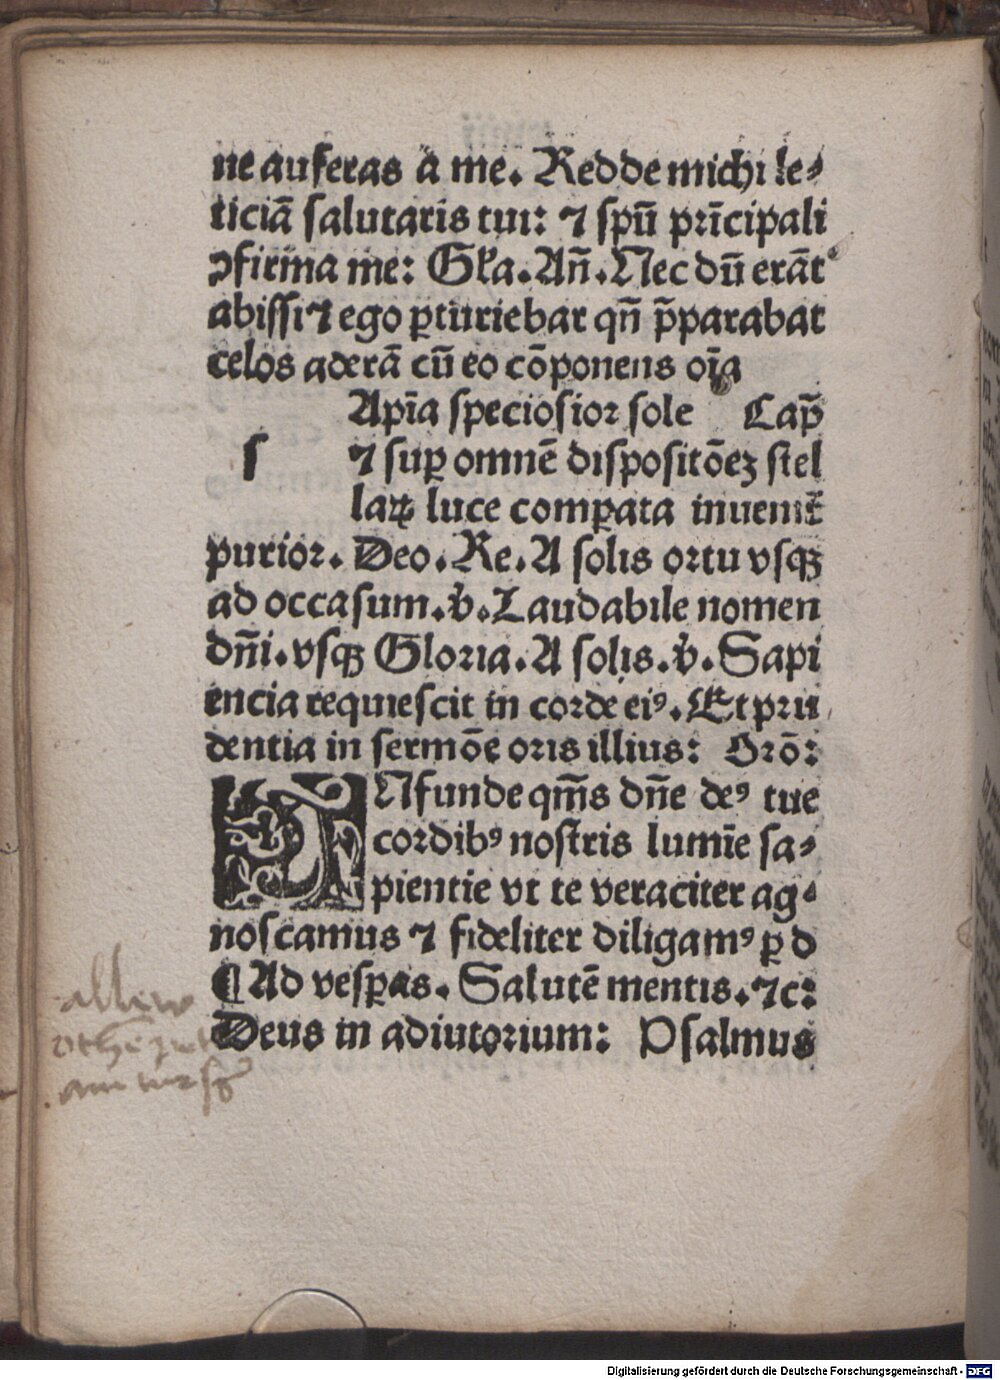 ne auferas a me. Redde michi le⸗
ticiā salutaris tui: ⁊ spū prīcipali
ꝯfirma me: Gl'a. Añ. Nec dū erāt
abissi ⁊ ego ꝑturiebar qñ p̄parabat
celos aderā cū eo cōponens oīa
Apīa speciosior sole Cap̄
s ⁊ suꝑ omnē dispositōeꝫ stel
laꝝ luce comꝑata inuenit̄
purior. Deo. Re. A solis ortu vsqꝫ
ad occasum. v̄. Laudabile nomen
dñi. vsqꝫ Gloria. A solis. v̄. Sapi
encia requiescit in corde eiꝰ. Et pru
dentia in sermōe oris illius: Orō:
INfunde qm̄s dñe deꝰ tue
cordibꝰ nostris lumīe sa⸗
pientie vt te veraciter ag⸗
noscamus ⁊ fideliter diligamꝰ ꝑ d
¶ Ad vesꝑas. Salutē mentis. ⁊c:
Deus in adiutorium: Psalmus
Digitalisierung gefördert durch die Deutsche Forschungsgemeinschaft - DFG